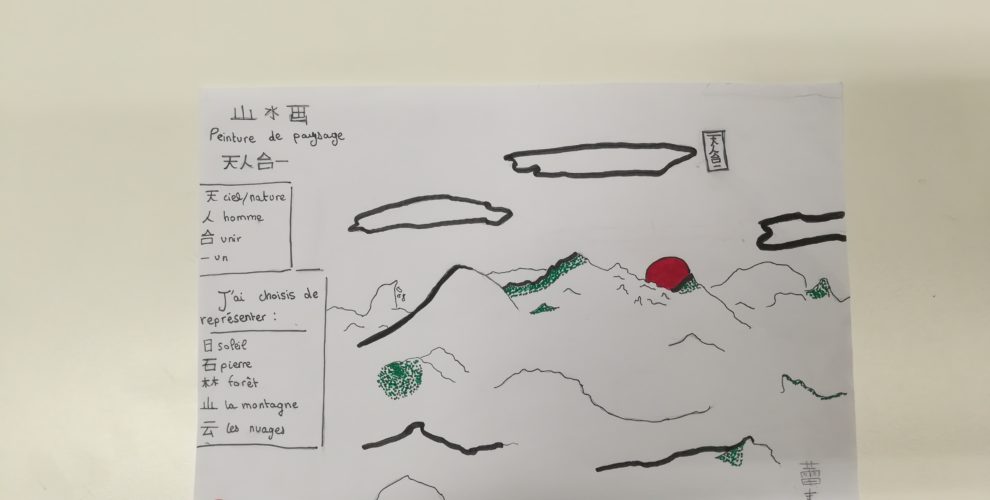 山水画
Peinture de paysage
天人合一
天 ciel/nature
人 homme
合 unir
一 un
J'ai choisis de
représenter :
日 soleil
石 pierre
林 forêt
山 la montagne
云 les nuages
天人合一